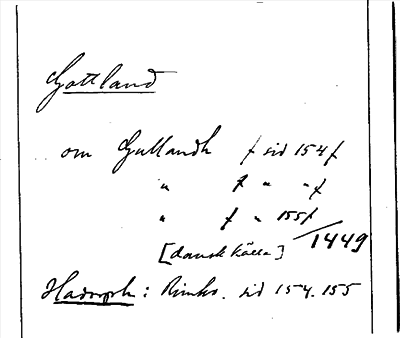 Gottland
om Gullandh f sid 154 f
" f " " f
" f " 155 f
[dansk källa] /1449
Hadorph: Rimkr. sid 154. 155